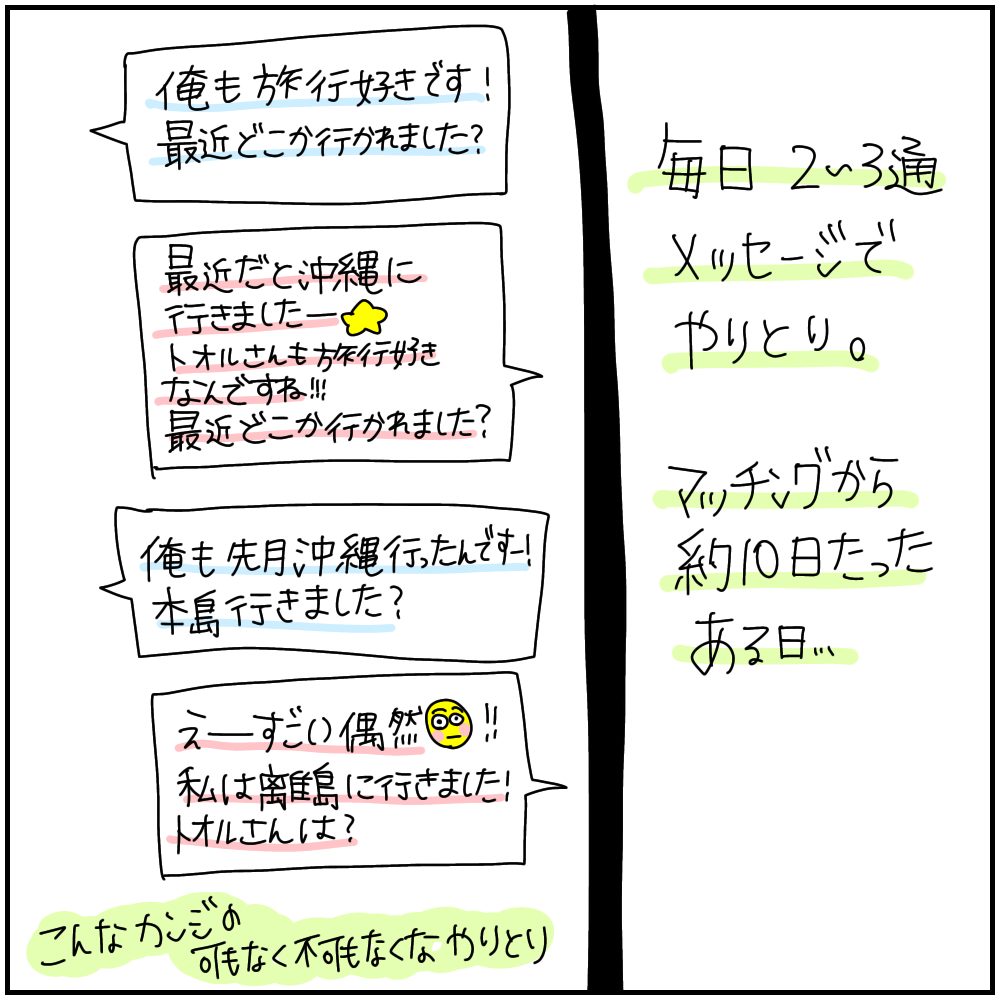 俺も旅行好きです!
最近どこか行かれました?
最近だと沖縄に
行きましたー
トオルさんも旅行好き
なんですね!!!
最近どこか行かれました?
俺も先月沖縄行ったんですー!
本島行きました?
えーすごい偶然!!
私は離島に行きました!
トオルさんは?
こんなカンジの
可もなく不可もなくなやりとり
毎日2〜3通
メッセージで
やりとり。
マッチングから
約10日たった
ある日...